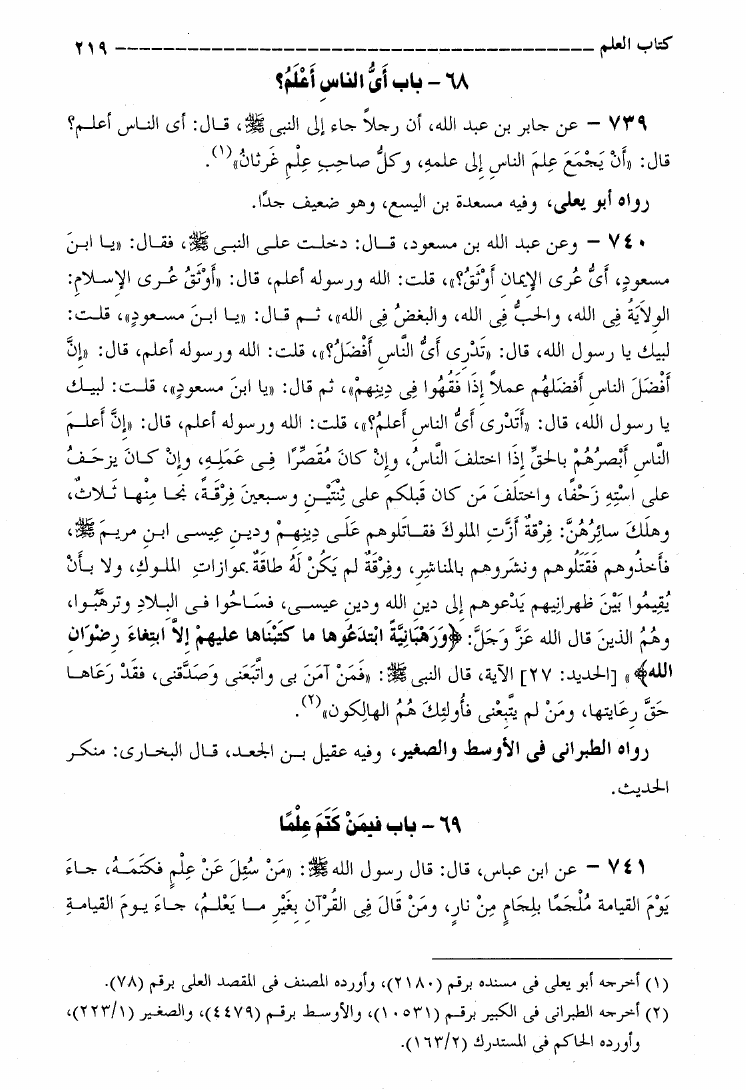 كتاب العلم ــــــــــــــــــــــــــــــــــــــــــــــــــــــــــــ ٢١٩
٦٨ – باب أَىُّ الناسِ أَعْلَمُ؟
٧٣٩ – عن جابر بن عبد الله، أن رجلاً جاء إلى النبى ﷺ، قال: أى الناس أعلم؟
قال: «أَنْ يَجْمَعَ عِلمَ الناسِ إلى علمهِ، وكلُّ صاحبِ عِلْمٍ غَرثانُ»(١).
رواه أبو يعلى، وفيه مسعدة بن اليسع، وهو ضعيف جدًا.
٧٤٠ – وعن عبد الله بن مسعود، قال: دخلت على النبى ﷺ، فقال: «يا ابنَ
مسعودٍ، أَىُّ عُرى الإيمانِ أَوْثَقُ؟»، قلت: الله ورسوله أعلم، قال: «أَوْثَقُ عُرى الإسلامِ:
الولاَيَةُ فِى الله، والحبُّ فِى الله، والبغضُ فِى الله»، ثم قال: «يا ابنَ مسعودٍ»، قلت:
لبيك يا رسول الله، قال: «تَدْرِى أَىُّ النَّاسِ أَفْضَلُ؟»، قلت: الله ورسوله أعلم، قال: «إنَّ
أَفْضَلَ الناسِ أفضَلهُم عملاً إذَا فَقُهُوا فِى دِينِهِمْ»، ثم قال: «يا ابنَ مسعودٍ»، قلت: لبيك
يا رسول الله، قال: «أَتَدْرِى أَىُّ الناسِ أَعلمُ؟»، قلت: الله ورسوله أعلم، قال: «إنَّ أَعلمَ
النَّاسِ أَبْصرُهُمْ بالحقِّ إذَا اختلفَ النَّاسُ، وإنْ كانَ مُقَصِّرًا فِى عَمَلِهِ، وإنْ كانَ يزحَفُ
على اسْتِهِ زَحْفًا، واختلَفَ مَن كان قبلكم على ثِنْتَيْنِ وسبعينَ فِرْقَةً، نَجَا مِنْها ثَلاثٌ،
وهلَكَ سائِرُهُنَّ: فِرْقةٌ أزَّتِ الملوكَ فقاتَلوهم عَلَى دِينِهِمْ ودينِ عِيسى ابنِ مريمَ ﷺ،
فأَخذُوهم فقَتَلُوهم ونشَروهم بالمناشرِ، وفِرْقةٌ لم يَكُنْ لَهُ طاقَةٌ بموازاتِ الملوكِ، ولا بأَنْ
يُقِيمُوا بَيْنَ ظهرانِيهم يَدْعوهم إلى دينِ الله ودينِ عيسى، فسَاحُوا فى البلادِ وترهَّبُوا،
وهُمُ الذينَ قال الله عَزَّ وَجَلَّ: ﴿وَرَهْبَانِيَّةً ابْتدَعُوهَا ما كتَبْنَاها عليهِمْ إلاَّ ابتِغَاءَ رِضْوَانِ
الله﴾» [الحديد: ٢٧] الآية، قال النبى ﷺ: «فَمَنْ آمَنَ بى واتَّبَعَنى وَصَدَّقنى، فقَدْ رَعَاها
حَقَّ رِعَايتها، ومَنْ لم يَتَّبِعْنى فأُولئِكَ هُمُ الهالِكون»(٢).
رواه الطبرانى فى الأوسط والصغير، وفيه عقيل بن الجعد، قال البخارى: منكر
الحديث.
٦٩ – باب فيمَنْ كَتَمَ عِلْمًا
٧٤١ – عن ابن عباس، قال: قال رسول الله ﷺ: «مَنْ سُئِلَ عَنْ عِلْمٍ فكتَمَهُ، جاءَ
يَوْمَ القيامة مُلْجَمًا بلِجَامٍ مِنْ نارٍ، ومَنْ قَالَ فِى القُرْآنِ بِغَيْرِ ما يَعْلَمُ، جاءَ يومَ القيامةِ
(١) أخرجه أبو يعلى فى مسنده برقم (٢١٨٠)، وأورده المصنف فى المقصد العلى برقم (٧٨).
(٢) أخرجه الطبرانى فى الكبير برقم (١٠٥٣١)، والأوسط برقم (٤٤٧٩)، والصغير (٢٢٣/١)،
وأورده الحاكم فى المستدرك (١٦٣/٢).